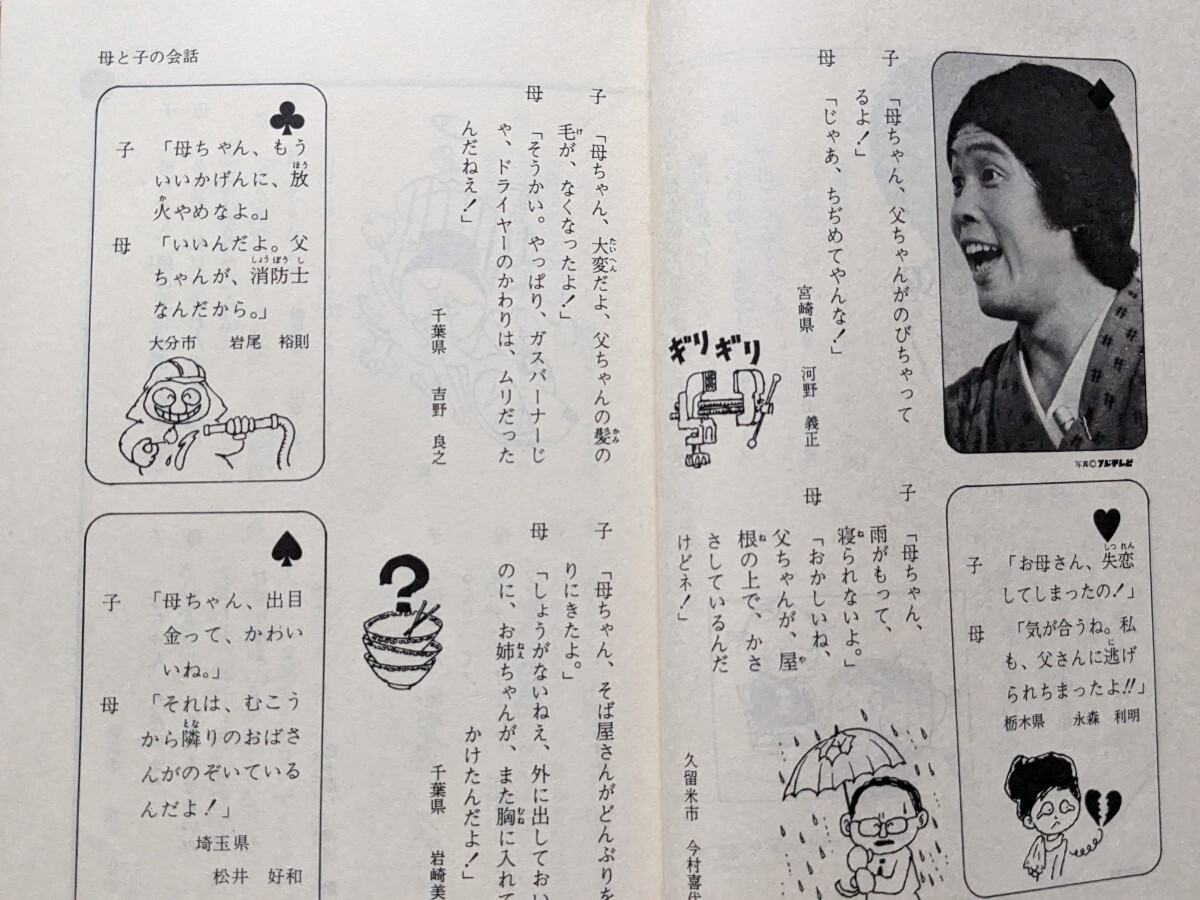 母と子の会話
写真©フジテレビ
子 「母ちゃん、父ちゃんがのびちゃって
るよ！」
母 「じゃあ、ちぢめてやんな！」
宮崎県 河野 義正
ギリギリ
子 「母ちゃん、大変だよ、父ちゃんの髪の
毛が、なくなったよ！」
母 「そうかい。やっぱり、ガスバーナーじ
ゃ、ドライヤーのかわりは、ムリだった
んだねえ！」
千葉県 吉野 良之
♣
子 「母ちゃん、もう
いいかげんに、放
火やめなよ。」
母 「いいんだよ。父
ちゃんが、消防士
なんだから。」
大分市 岩尾 裕則
♥
子 「お母さん、失恋
してしまったの！」
母 「気が合うね。私
も、父さんに逃げ
られちまったよ!!」
栃木県 永森 利明
子 「母ちゃん、
雨がもって、
寝られないよ。」
母 「おかしいね、
父ちゃんが、屋
根の上で、かさ
さしているんだ
けどネ！」
久留米市 今村喜代
子 「母ちゃん、そば屋さんがどんぶりを
りにきたよ。」
母 「しょうがないねえ、外に出しておい
のに、お姉ちゃんが、また胸に入れて
かけたんだよ！」
千葉県 岩崎美
?
♠
子 「母ちゃん、出目
金って、かわい
いね。」
母 「それは、むこう
から隣りのおばさ
んがのぞいている
んだよ！」
埼玉県
松井 好和